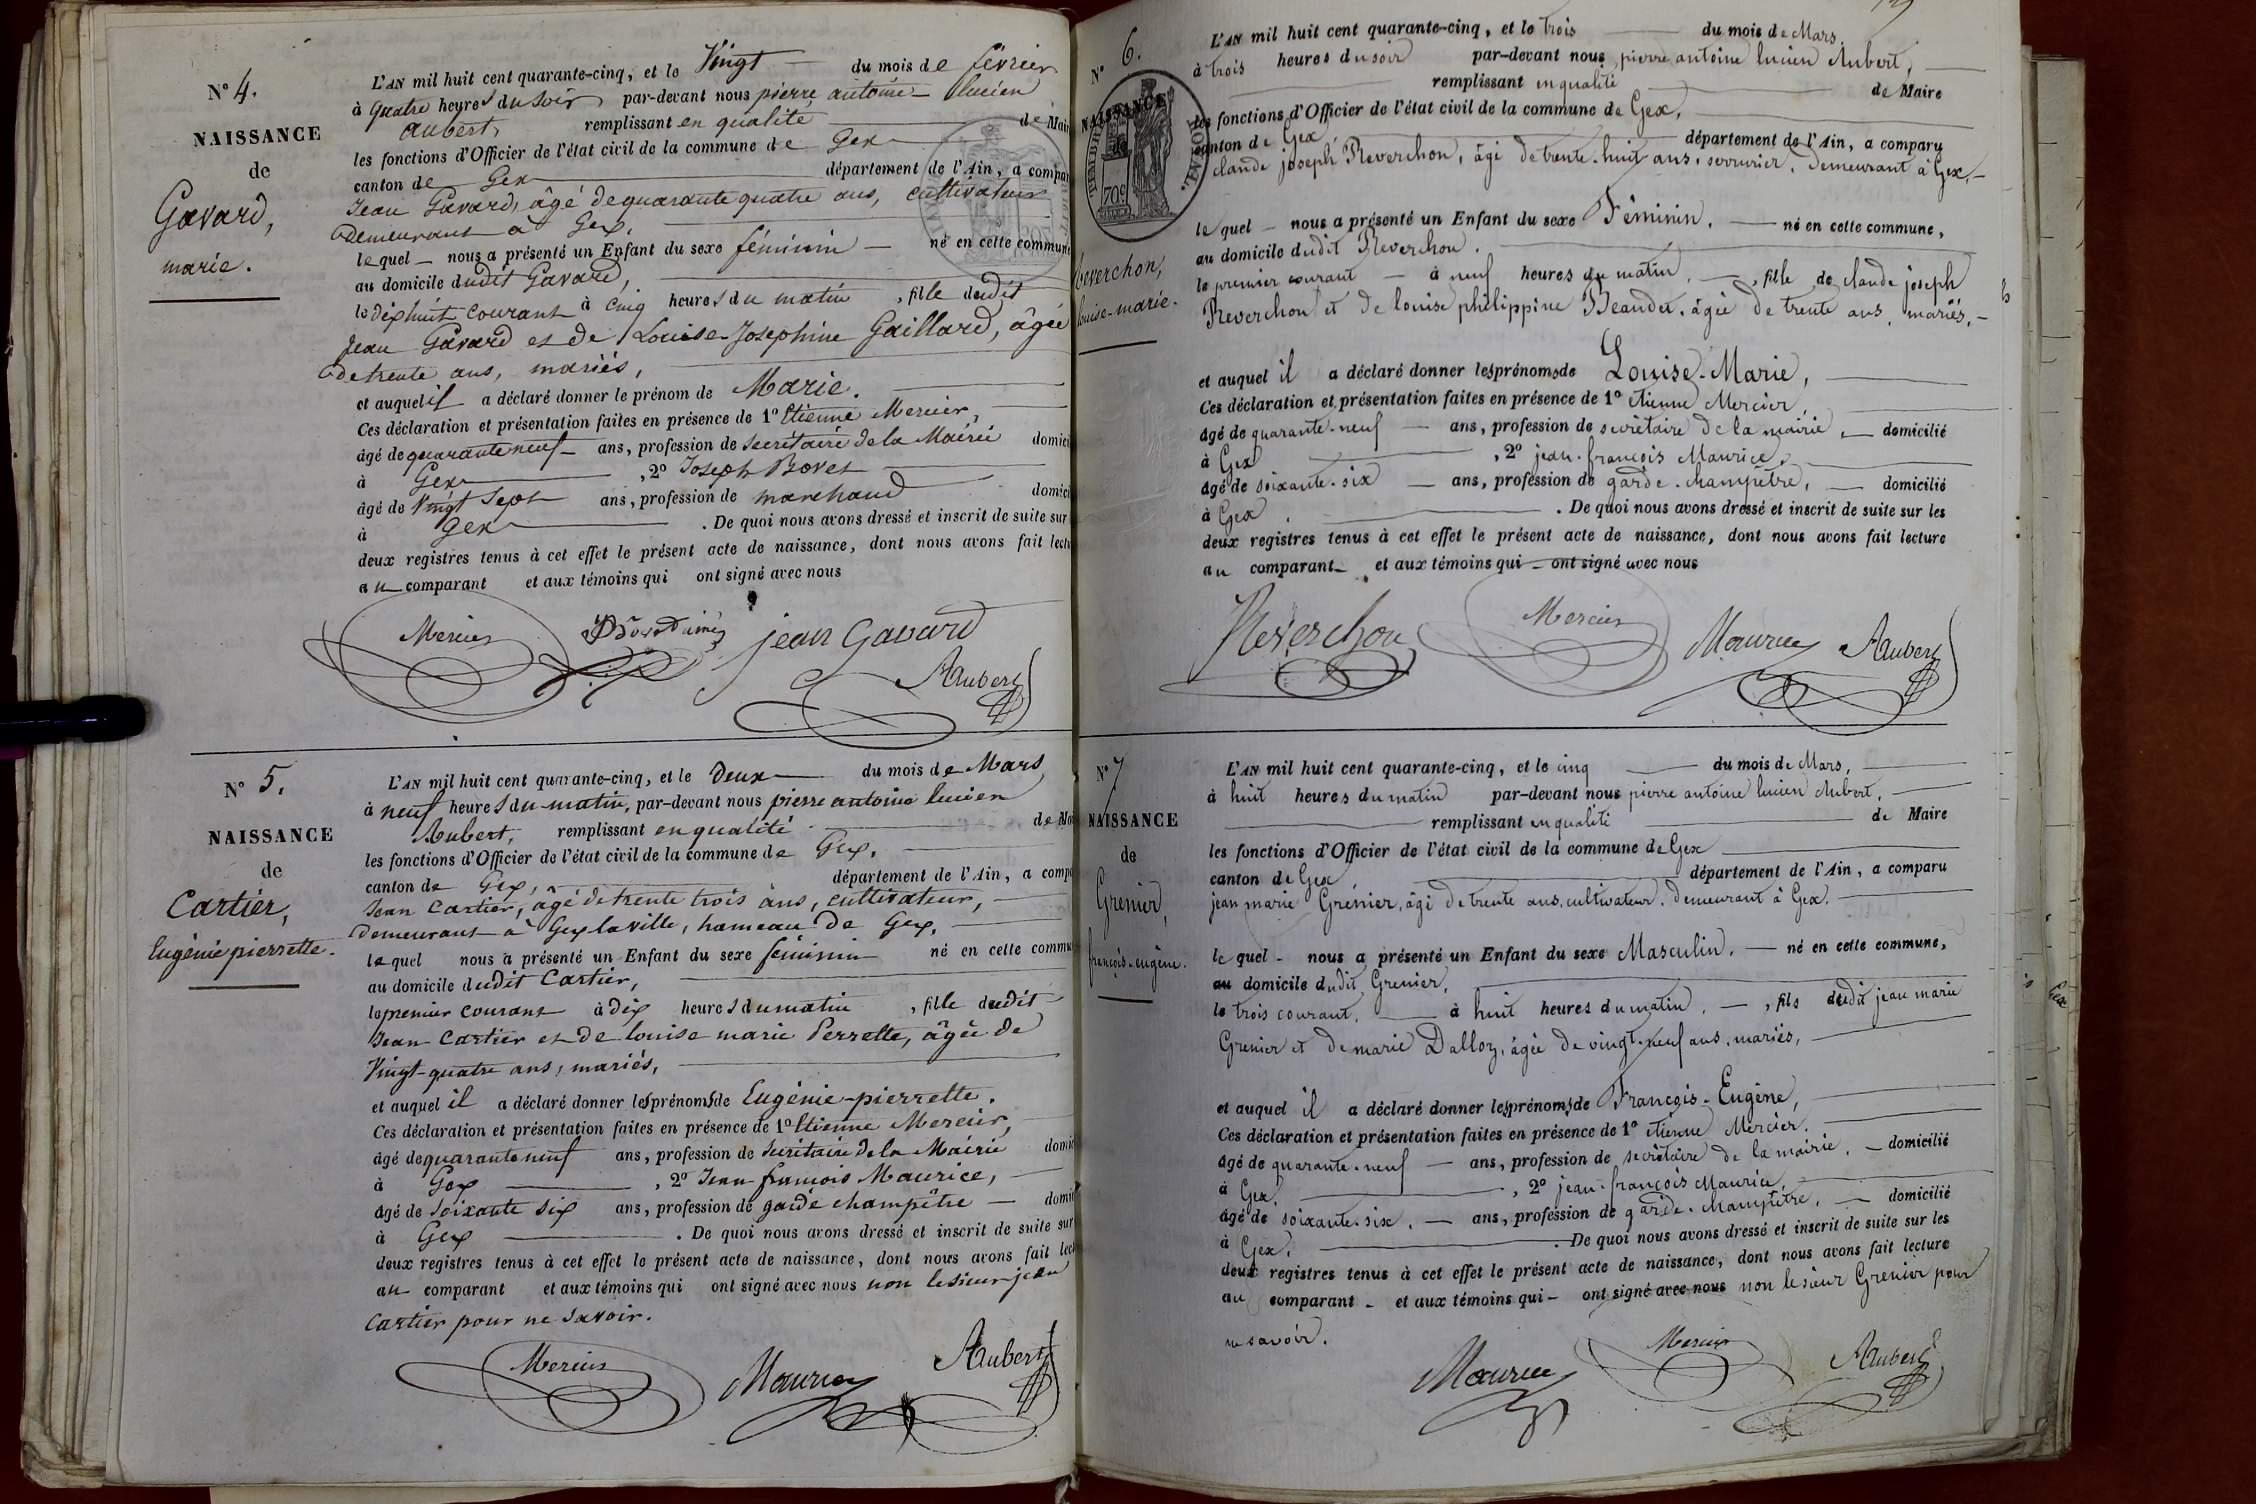 N° 4.
NAISSANCE
de
Gavard,
marie.
L'AN mil huit cent quarante-cinq, et le Vingt du mois de février
à quatre heures du soir par-devant nous pierre antoine lucien
aubert, remplissant en qualité de Mair
les fonctions d'Officier de l'état civil de la commune de Gex
canton de Gex département de l'Ain, a compar
Jean Gavard, âgé de quarante quatre ans, cultivateur
demeurant à Gex,
lequel nous a présenté un Enfant du sexe féminin né en cette commune
au domicile dudit Gavard,
le dixhuit courant à cinq heures du matin, fille dudit
Jean Gavard et de Louise-Josephine Gaillard, âgée
de trente ans, mariés,
et auquel il a déclaré donner le prénom de Marie.
Ces déclaration et présentation faites en présence de 1° Etienne Mercier,
âgé de quarante neuf ans, profession de secrétaire de la Mairie domici
à Gex, 2° Joseph Bovet
âgé de Vingt Sept ans, profession de marchand domici
à Gex. De quoi nous avons dressé et inscrit de suite sur
deux registres tenus à cet effet le présent acte de naissance, dont nous avons fait lectu
au comparant et aux témoins qui ont signé avec nous
Mercier jean Gavard
Aubert
N° 5.
NAISSANCE
de
Cartier,
Eugénie pierrette.
L'AN mil huit cent quarante-cinq, et le Deux du mois de Mars
à neuf heures du matin, par-devant nous pierre antoine lucien
Aubert, remplissant en qualité de Mai
les fonctions d'Officier de l'état civil de la commune de Gex,
canton de Gex, département de l'Ain, a compa
Jean Cartier, âgé de trente trois ans, cultivateur,
demeurant à Gex la ville, hameau de Gex,
lequel nous a présenté un Enfant du sexe féminin né en cette commu
au domicile dudit Cartier,
le premier courant à dix heures du matin, fille dudit
Jean Cartier et de louise marie Perrette, âgée de
Vingt-quatre ans, mariés,
et auquel il a déclaré donner les prénoms de Eugénie-pierrette.
Ces déclaration et présentation faites en présence de 1° Etienne Mercier,
âgé de quarante neuf ans, profession de secrétaire de la Mairie domici
à Gex, 2° Jean-françois Maurice,
âgé de Soixante six ans, profession de garde champêtre domici
à Gex. De quoi nous avons dressé et inscrit de suite sur
deux registres tenus à cet effet le présent acte de naissance, dont nous avons fait lect
au comparant et aux témoins qui ont signé avec nous non le sieur jean
Cartier pour ne savoir.
Mercier Maurice Aubert
N° 6.
NAISSANCE
TIMBRE ROYAL
70c
Reverchon,
louise-marie.
L'AN mil huit cent quarante-cinq, et le trois du mois de Mars,
à trois heures du soir par-devant nous pierre antoine lucien Aubert,
remplissant en qualité de Maire
les fonctions d'Officier de l'état civil de la commune de Gex,
canton de Gex département de l'Ain, a comparu
claude joseph Reverchon, âgé de trente-huit ans, serrurier, demeurant à Gex,
lequel nous a présenté un Enfant du sexe Féminin, né en cette commune,
au domicile dudit Reverchon,
le premier courant à neuf heures du matin, fille de claude joseph
Reverchon et de louise philippine Beaudet, âgée de trente ans, mariés,
et auquel il a déclaré donner les prénoms de Louise-Marie,
Ces déclaration et présentation faites en présence de 1° étienne Mercier,
âgé de quarante-neuf ans, profession de secrétaire de la mairie, domicilié
à Gex, 2° jean-françois Maurice,
âgé de soixante-six ans, profession de garde-champêtre, domicilié
à Gex. De quoi nous avons dressé et inscrit de suite sur les
deux registres tenus à cet effet le présent acte de naissance, dont nous avons fait lecture
au comparant et aux témoins qui ont signé avec nous
Reverchon Mercier Maurice Aubert
N° 7
NAISSANCE
de
Grenier,
françois-eugène.
L'AN mil huit cent quarante-cinq, et le cinq du mois de Mars,
à huit heures du matin par-devant nous pierre antoine lucien Aubert,
remplissant en qualité de Maire
les fonctions d'Officier de l'état civil de la commune de Gex
canton de Gex, département de l'Ain, a comparu
jean marie Grenier, âgé de trente ans, cultivateur, demeurant à Gex,
lequel nous a présenté un Enfant du sexe Masculin, né en cette commune,
au domicile dudit Grenier,
le trois courant, à huit heures du matin, fils dudit jean marie
Grenier et de marie Dalloz, âgée de vingt-neuf ans, mariés,
et auquel il a déclaré donner les prénoms de François-Eugène,
Ces déclaration et présentation faites en présence de 1° étienne Mercier,
âgé de quarante-neuf ans, profession de secrétaire de la mairie, domicilié
à Gex, 2° jean-françois Maurice,
âgé de soixante-six, ans, profession de garde-champêtre, domicilié
à Gex. De quoi nous avons dressé et inscrit de suite sur les
deux registres tenus à cet effet le présent acte de naissance, dont nous avons fait lecture
au comparant et aux témoins qui ont signé avec nous non le sieur Grenier pour
ne savoir.
Maurice Mercier Aubert
Gex